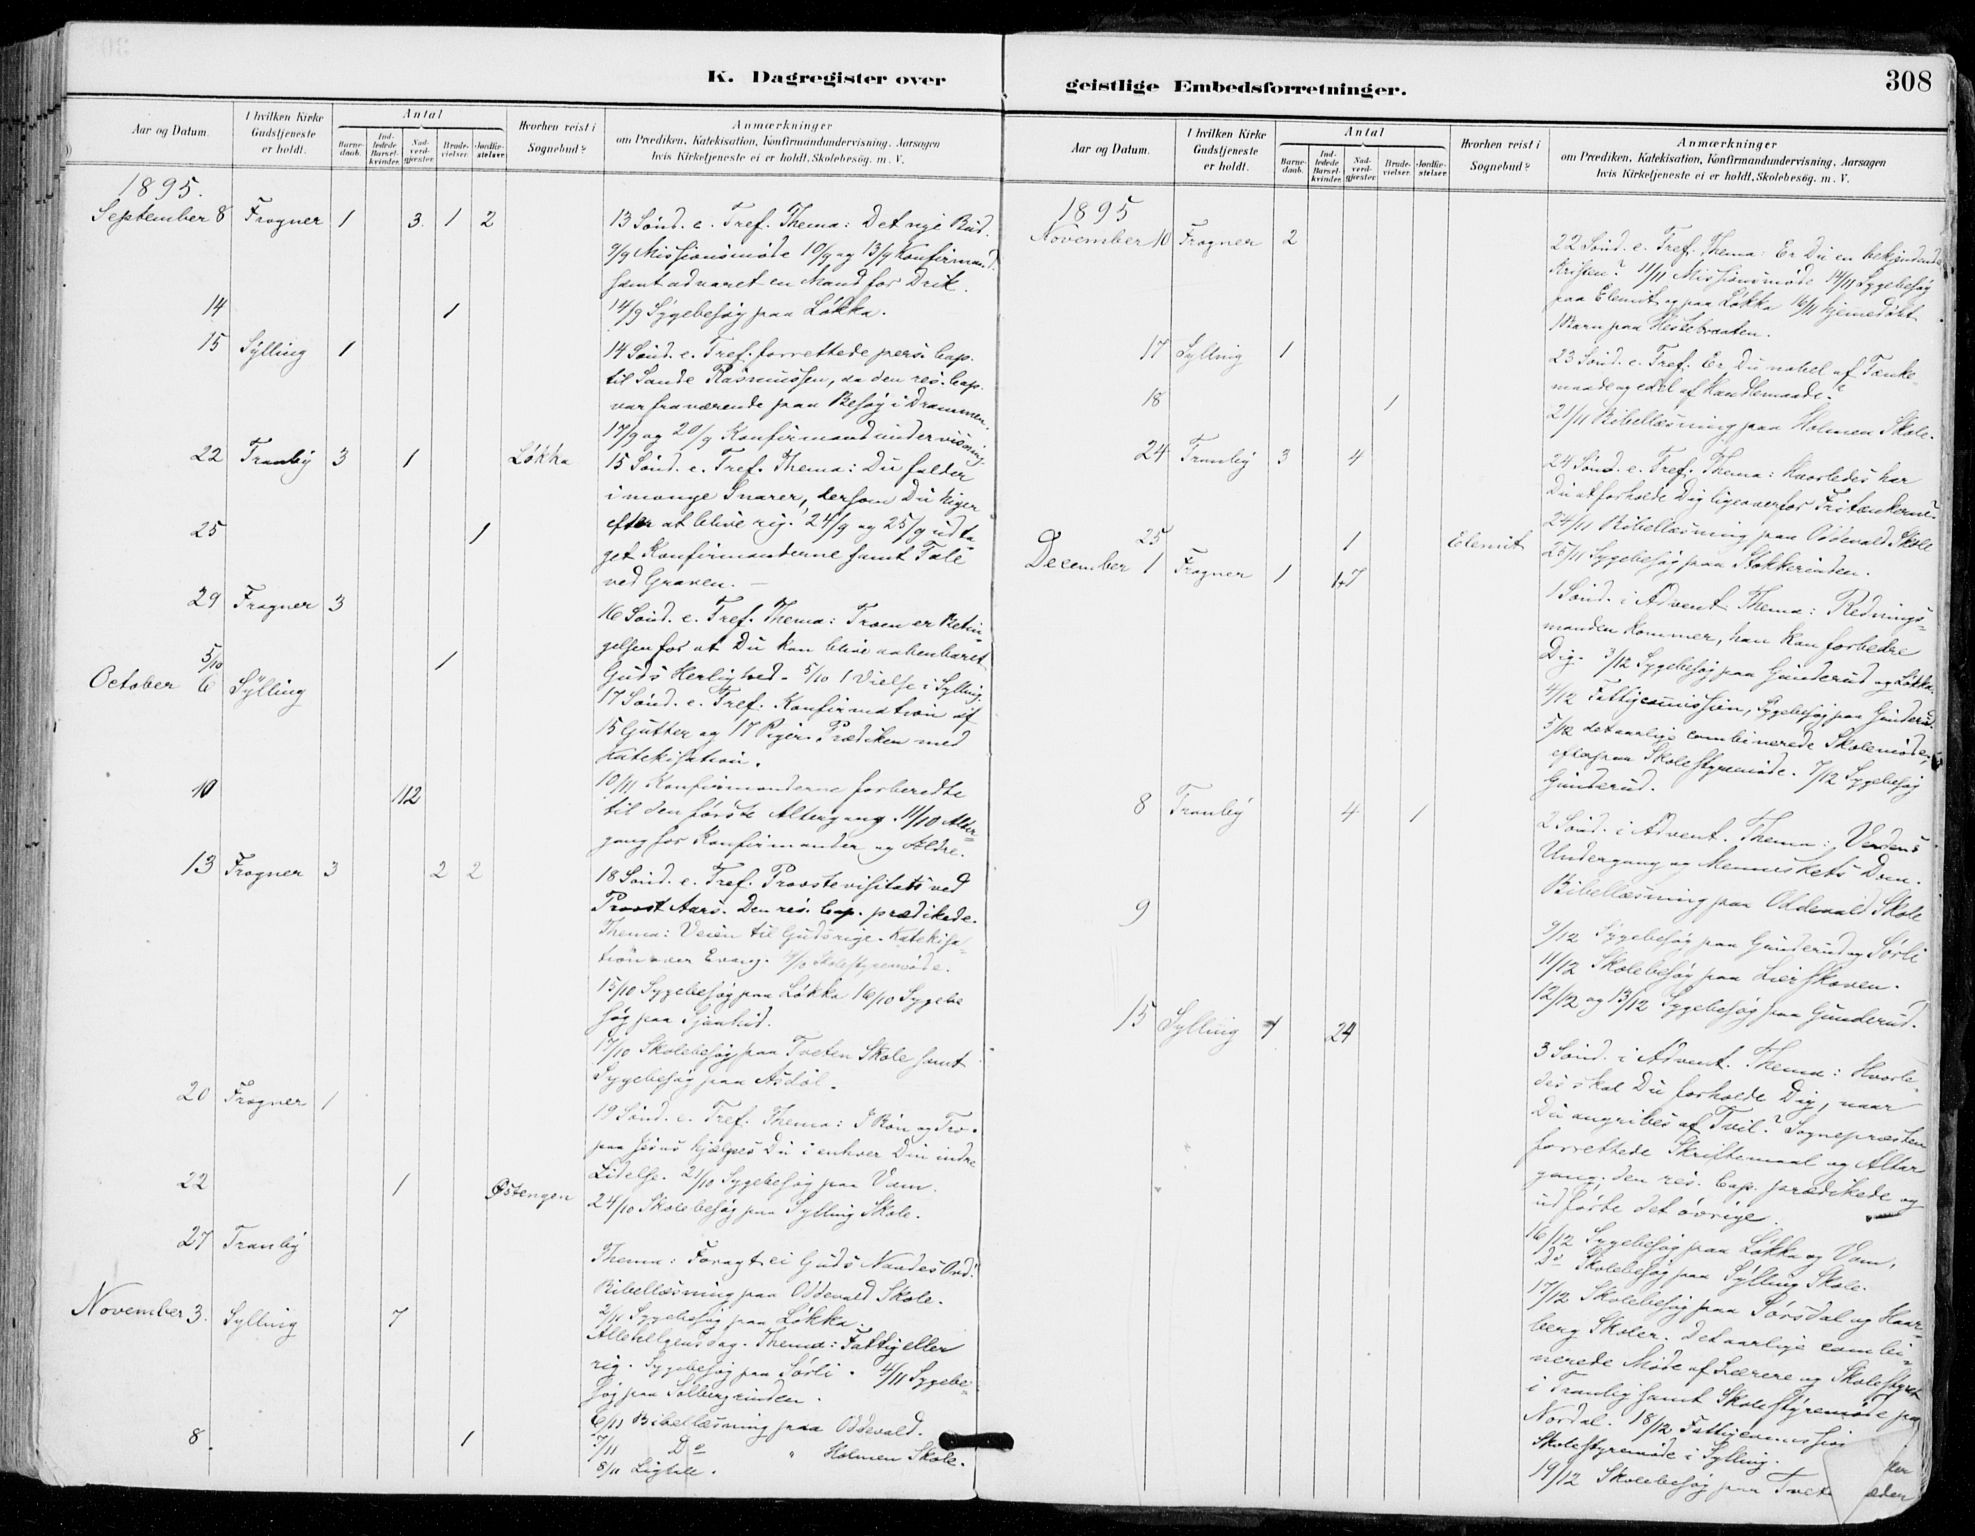 K. Dagregister over
Aar og Datum.
I hvilken Kirke Gudstjeneste er holdt.
Antal
Barnedaab.
Indledede Barselkvinder.
Nadverdgjester.
Brudevielser.
Jordfæstelser.
Hvorhen reist i Sognebud?
Anmærkninger
om Prædiken, Katekisation, Konfirmandundervisning, Aarsagen
hvis Kirketjeneste ei er holdt, Skolebesøg. m. V.
1895.
September 8 Frogner 1 3 1 2 13 Sønd. e. Tref. Thema: Det nye Bud.
9/9 Missionsmøde 10/9 og 13/9 Konfirmand.
samt advaret en Mand for Drik.
14 1 14/9 Sygebesøg paa Løkka.
15 Sylling 1 14 Sønd. e. Tref. forrettede pers. Cap.
til Sande Rasmussen, da den res. Cap.
var fraværende paa Besøg i Drammen.
17/9 og 20/9 Konfirmandundervisning.
22 Tranby 3 1 Løkka 15 Sønd. e. Tref. Thema: Du falder
i mange Snarer, dersom Du higer
efter at blive rig! 24/9 og 25/9 udta
25 1 get Konfirmanderne samt Tale
ved Graven. —
29 Frogner 3 16 Sønd. e. Tref. Thema: Troen er Betin-
gelsen for at Du kan blive aabenbaret
5/10 1 Guds Herlighed. 5/10 1 Vielse i Sylling.
October 6 Sylling 17 Sønd. e. Tref. Konfirmation af
15 Gutter og 17 Piger. Prædiken med
Katekisation.
10 112 10/11 Konfirmanderne forberedte
til den første Altergang. 11/10 Alter-
gang for Konfirmander og Ældre.
13 Frogner 3 2 2 18 Sønd. e. Tref. Provstevisitats ved
Provst Aars. Den res. Cap. prædikede.
Thema: Veien til Guds rige. Katekisa-
tion over Evang. Skolestyremøde.
15/10 Sygebesøg paa Løkka 16/10 Sygebe
søg paa
17/10 Skolebesøg paa Tveten Skole samt
Sygebesøg paa Asdøl.
20 Frogner 1 19 Sønd. e. Tref. Thema: I Bøn og Tro
paa Jesus hjælpes Du i enhver Din indre
Lidelse. 21/10 Sygebesøg paa Vam.
22 1 Østengen 24/10 Skolebesøg paa Sylling Skole.
27 Tranby Thema: Foragt ei Guds Naades Ord!
Bibellæsning paa Oddevald Skole.
2/11 Sygebesøg paa Løkka.
November 3. Sylling 7 Allehelgensdag. Thema: Fattig eller
rig. Sygebesøg paa Sørli. 4/11 Sygebe-
søg paa Solbergeinden.
6/11 Bibellæsning paa Oddevald.
8. 1 7/11 Do " Holmen Skole.
8/11 Ligtale.
geistlige Embedsforretninger.
308
Aar og Datum.
I hvilken Kirke Gudstjeneste er holdt.
Antal
Barnedaab.
Indledede Barselkvinder.
Nadverdgjester.
Brudevielser.
Jordfæstelser.
Hvorhen reist i Sognebud?
Anmærkninger
om Prædiken, Katekisation, Konfirmandundervisning, Aarsagen
hvis Kirketjeneste ei er holdt, Skolebesøg. m. V.
1895
November 10 Frogner 2 22 Sønd. e. Tref. Thema: Er Du en bekjendende
Kristen? 11/11 Missionsmøde 14/11 Sygebesøg
paa Elemit og paa Løkka 16/11 hjemedøbt
1 Barn paa Hestebraaten.
17 Sylling 1 23 Sønd. e. Tref. Er Du nobel af Tænke-
maade og edel af Handlemaade?
18 1 21/11 Bibellæsning paa Holmen Skole.
24 Tranby 3 4 24 Sønd. e. Tref. Thema: Hvorledes har
Du at forholde Dig ligeoverfor Fritænkerne?
24/11 Bibellæsning paa Oddevald Skole
25 1 Elemit 25/11 Sygebesøg paa Stokkerinden.
December 1 Frogner 1 17 1 Sønd. i Advent. Thema: Rednings-
manden kommer, han kan forbedre
Dig. 3/12 Sygebesøg paa Gunderud og Løkka.
4/12 Fattigcomission, Sygebesøg paa Gunderud.
5/12 det aarlige combinerede Skolemøde,
efterpaa Skolestyremøde. 7/12 Sygebesøg
Gunderud.
8 Tranby 4 1 2 Sønd. i Advent. Thema: Verdens
Undergang og Menneskets Dom.
Bibellæsning paa Oddevald Skole
9 9/12 Sygebesøg paa Gunderud og Sørli
11/12 Skolebesøg paa Lierskoven.
12/12 og 13/12 Sygebesøg paa Gunderud.
15 Sylling 1 24 3 Sønd. i Advent. Thema: Hvorle-
des skal Du forholde Dig, naar
Du angribes af Tvil? Sognepræsten
forrettede Skriftemaal og Alter
gang. den res. Cap. prædikede og
udførte det øvrige.
16/12 Sygebesøg paa Løkka og Vam,
Do Skolebesøg paa Sylling Skole.
17/12 Skolebesøg paa Sørsdal og Haar-
berg Skoler. Det aarlige combi-
nerede Møde af Lærere og Skolestyret
i Tranby samt Skolestyremøde paa
Nordal. 18/12 Fattigcommission
Skolestyremøde i Sylling.
19/12 Skolebesøg paa Tvete